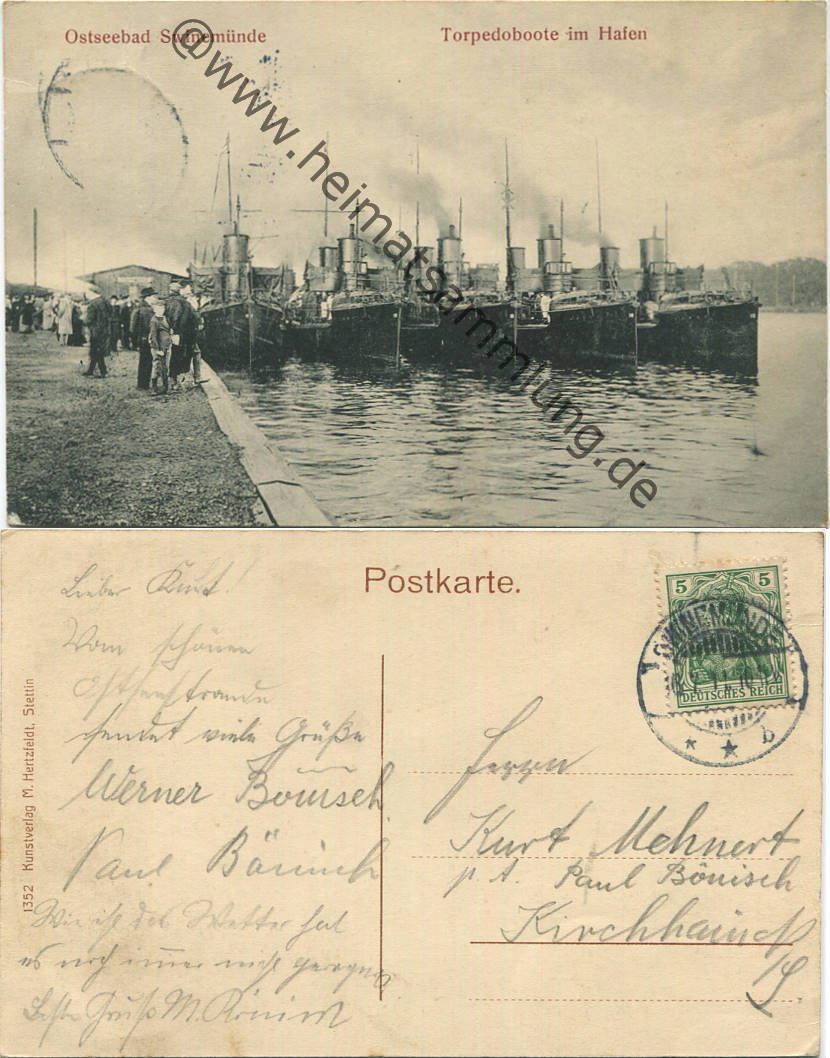 Ostseebad Swinemünde
Torpedoboote im Hafen
@www.heimatsammlung.de
Postkarte.
5 5
DEUTSCHES REICH
SWINEMÜNDE
* * b
1352 Kunstverlag M. Hertzfeldt, Stettin
Lieber Kurt!
Vom schönen
Ostseestrande
sendet viele Grüße
Werner Bönisch
Paul Bönisch
Wie ist das Wetter hat
es noch immer nicht geregnet
Beste Gruß M. Bönisch
Herrn
Kurt Mehnert
Paul Bönisch
Kirchhain